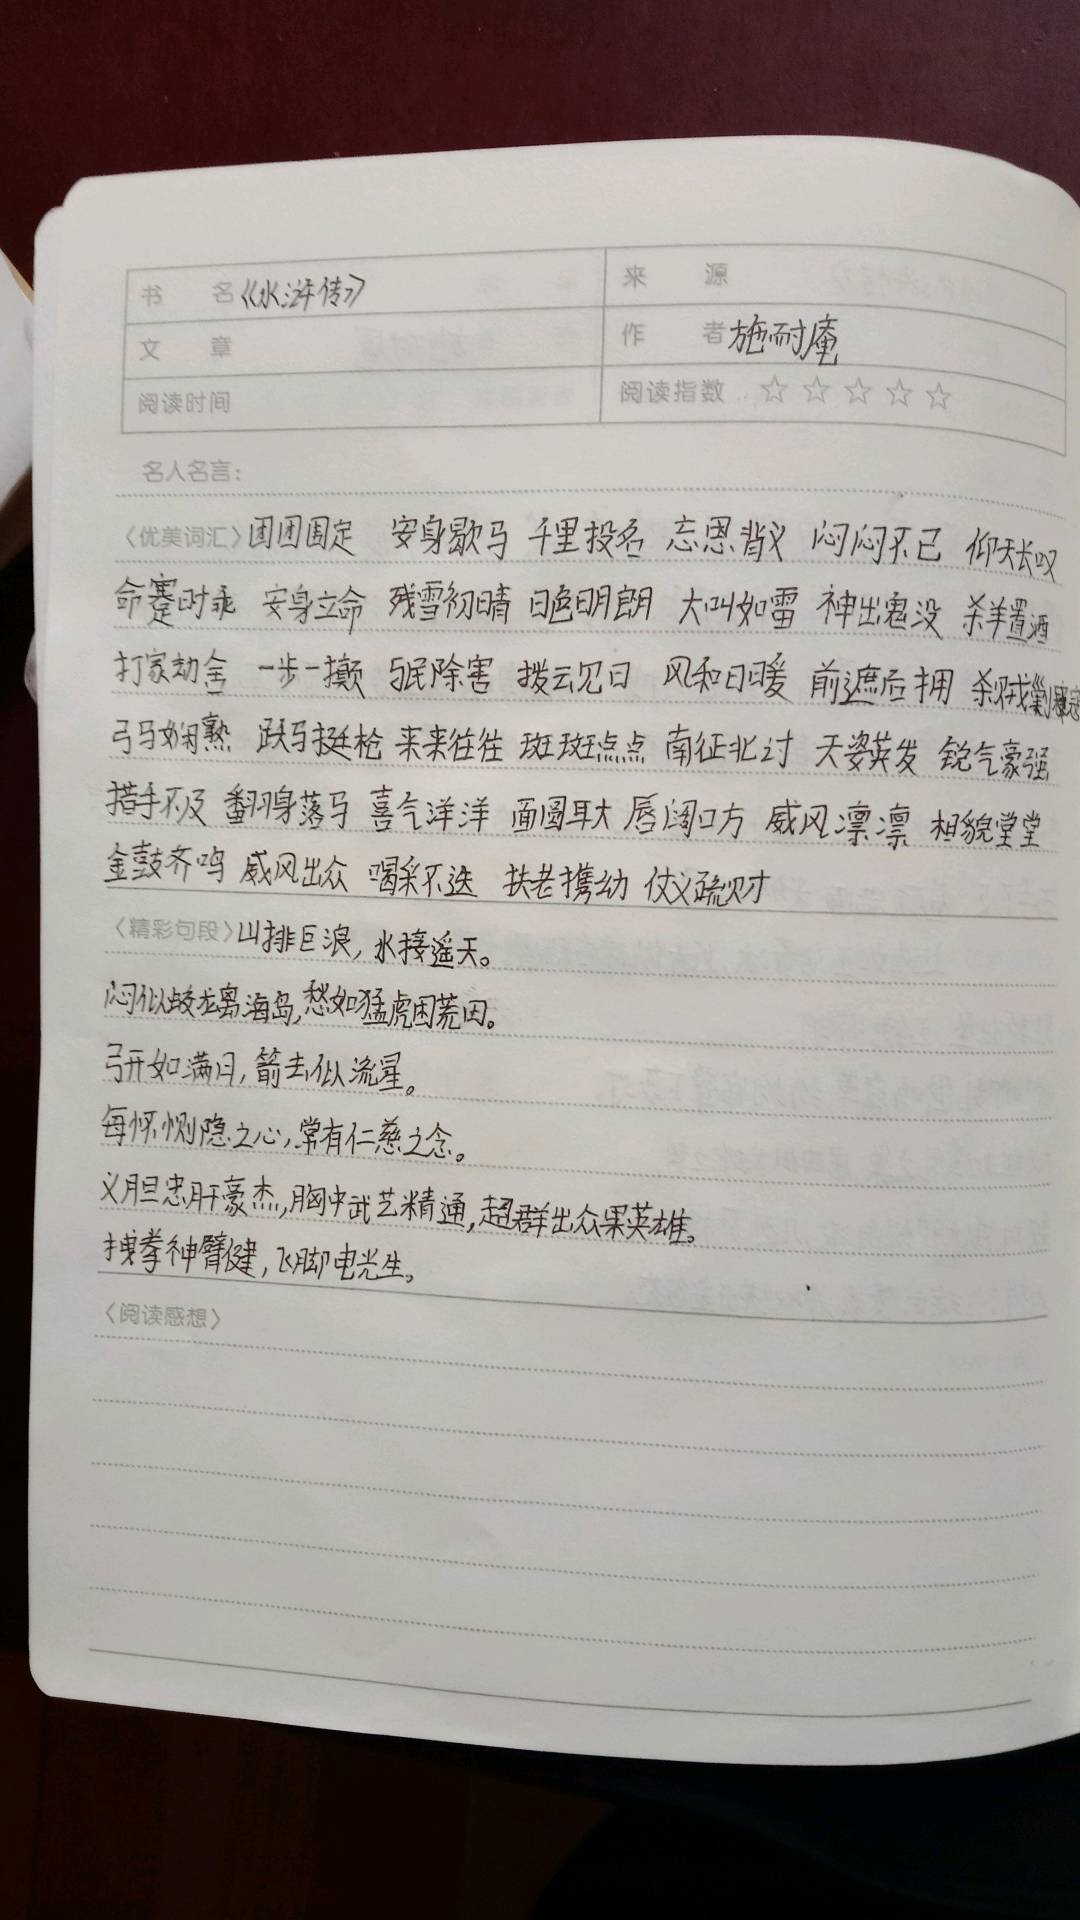 书 名 《水浒传》 来 源
文 章 作 者 施耐庵
阅读时间 阅读指数 ☆ ☆ ☆ ☆ ☆
名人名言：
〈优美词汇〉团团围定 安身歇马 千里投名 忘恩背义 闷闷不已 仰天长叹
命蹇时乖 安身立命 残雪初晴 日色明朗 大叫如雷 神出鬼没 杀羊置酒
打家劫舍 一步一攧 与民除害 拨云见日 风和日暖 前遮后拥 杀贼剿
弓马娴熟 跃马挺枪 来来往往 斑斑点点 南征北讨 天姿英发 锐气豪强
措手不及 翻身落马 喜气洋洋 面圆耳大 唇阔口方 威风凛凛 相貌堂堂
金鼓齐鸣 威风出众 喝采不迭 扶老携幼 仗义疏财
〈精彩句段〉山排巨浪，水接遥天。
闷似蛟龙离海岛，愁如猛虎困荒田。
弓开如满月，箭去似流星。
每怀恻隐之心，常有仁慈之念。
义胆忠肝豪杰，胸中武艺精通，超群出众果英雄。
拽拳神臂健，飞脚电光生。
〈阅读感想〉